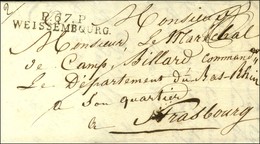 P.67.P.
WEISSEMBOURG.
Monsieur
Monsieur Le Maréchal
de Camp, Billard command
Le Département du Bas-Rhin
a Son quartier
a Strasbourg